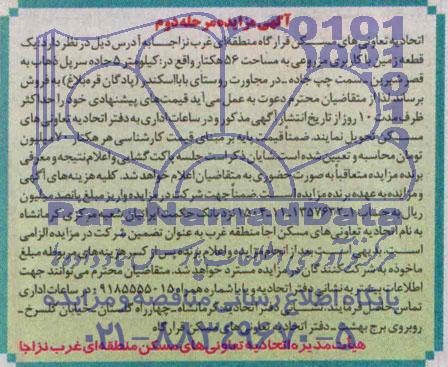 آگهی مزایده مرحله دوم
اتحادیه تعاونی های مسکن قرارگاه منطقه ای غرب نزاجا به آدرس ذیل در نظر دارد یک
قطعه زمین با کاربری مزروعی به مساحت ۵۶ هکتار واقع در: کیلومتر ۵ جاده سرپل ذهاب به
قصر شیرین سمت چپ جاده - در مجاورت روستای بابا اسکندر (پادگان قره بلاغ) به فروش
برساند لذا از متقاضیان محترم دعوت به عمل می آید قیمت های پیشنهادی خود را حداکثر
ظرف مدت ۱۰ روز از تاریخ انتشار آگهی مذکور و در ساعات اداری به دفتر اتحادیه تعاونی های
مسکن تحویل نمایند. ضمناً قیمت پایه بر مبنای قیمت کارشناسی هر هکتار ۷۰ میلیون
تومان محاسبه و تعیین شده است شایان ذکر است جلسه بازگشایی و اعلام نتیجه و معرفی
برنده مزایده متعاقبا به صورت حضوری به متقاضیان اعلام خواهد شد. کلیه هزینه های آگهی
و مزایده به عهده برنده مزایده است. ضمناً جهت شرکت در مزایده واریز مبلغ پانصد میلیون
ریال به حساب نزد بانک حکمت ایرانیان شعبه مرکزی کرمانشاه
به نام اتحادیه تعاونی های مسکن آجا منطقه غرب به عنوان تضمین شرکت در مزایده الزامی
است. بعد از انجام مزایده و اعلام برنده هزینه های مربوطه مبلغ
ماخوذه به شرکت کنندگان در مزایده مسترد خواهد شد. متقاضیان محترم می توانند جهت
اطلاعات بیشتر به نشانی دفتر اتحادیه و یا با شماره همراه ۰۹۱۸۵۵۵۵۰۱۵ در ساعات اداری
تماس حاصل فرمایند. نشانی دفتر اتحادیه: کرمانشاه - چهارراه گلستان - خیابان گلسرخ -
روبروی برج بهشتی - دفتر اتحادیه تعاونی های مسکن قرارگاه
هیات مدیره اتحادیه تعاونی های مسکن منطقه ای غرب نزاجا
پایگاه اطلاع رسانی مناقصه و مزایده
۰۲۱-۸۸۳۴۹۶۷۰-۵